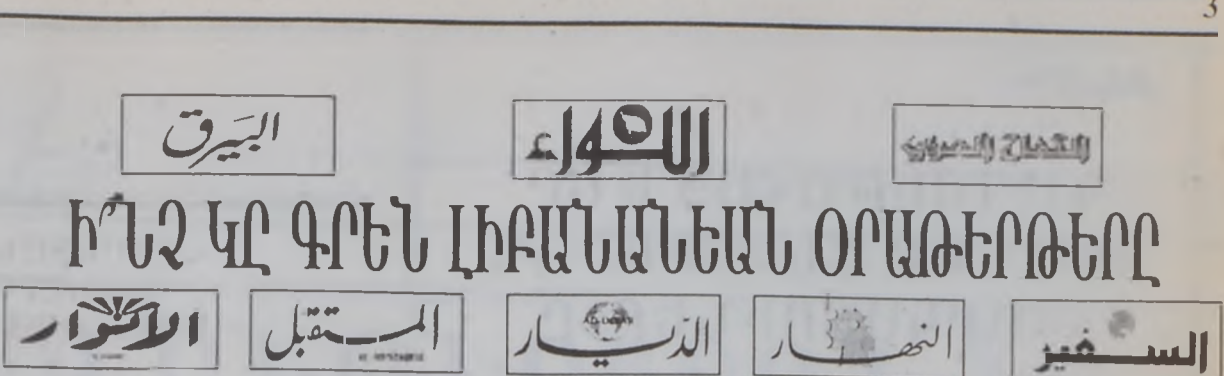 3
البيرق
اللواء
الكفاح العربي
Ի՞ՆՉ ԿԸ ԳՐԵՆ ԼԻԲԱՆԱՆԵԱՆ ՕՐԱԹԵՐԹԵՐԸ
الأنوار
المستقبل
الديار
النهار
السفير